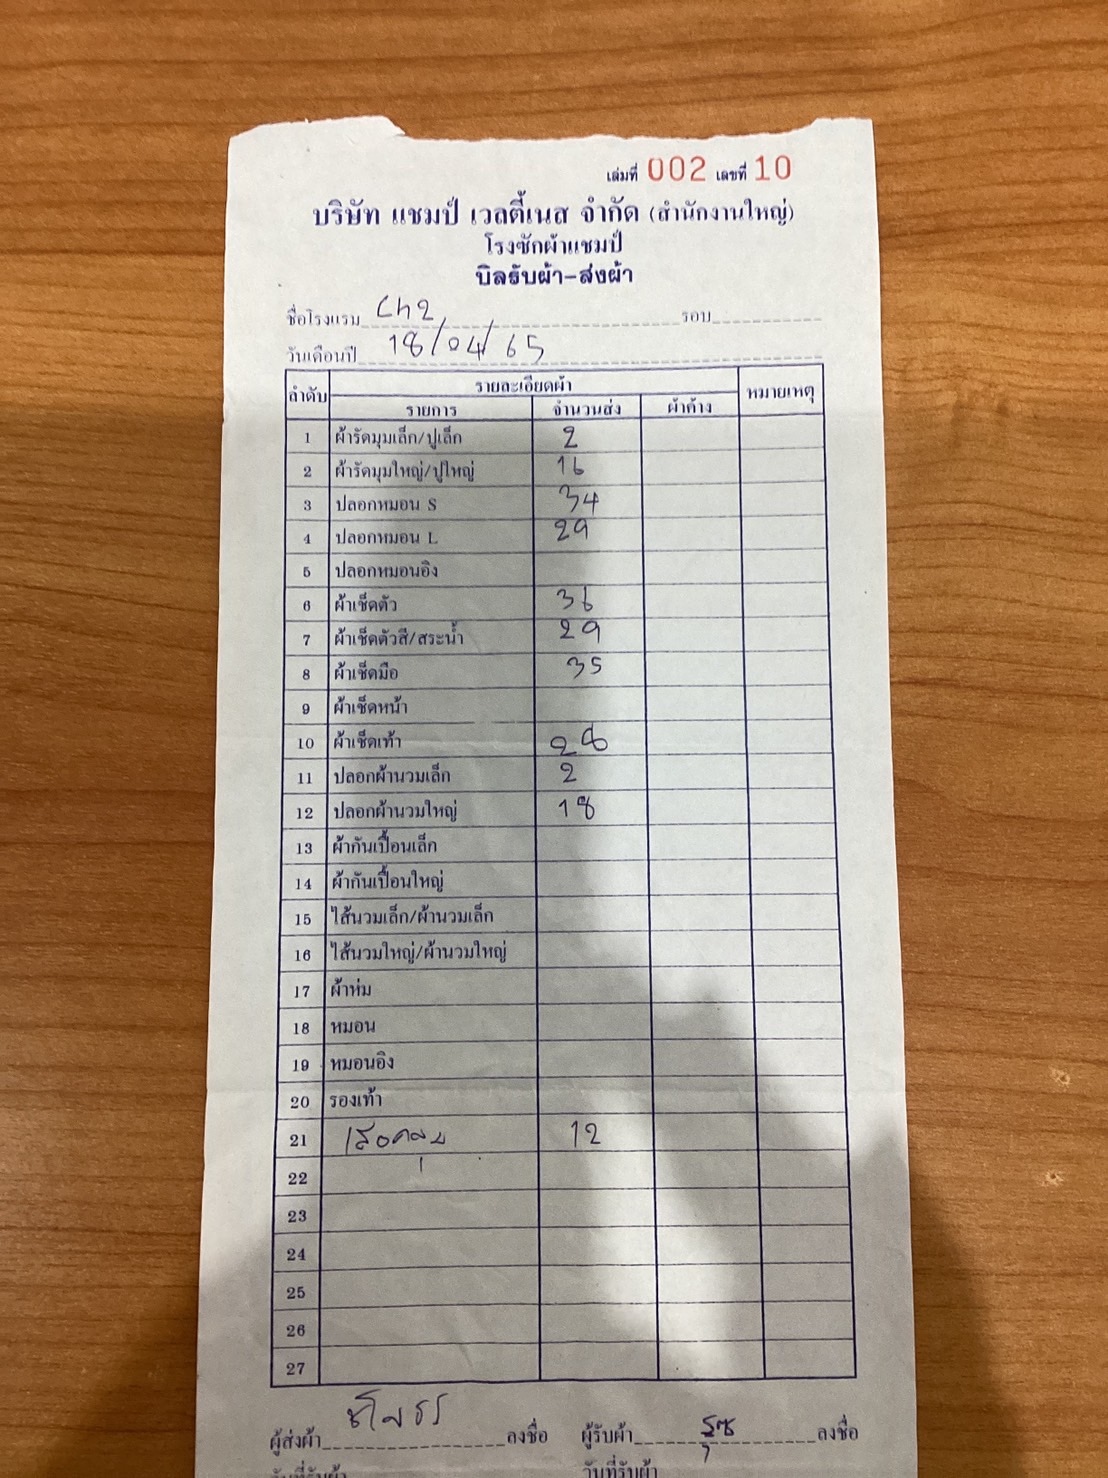 เล่มที่ 002 เลขที่ 10
บริษัท แชมป์ เวลตี้เนส จำกัด (สำนักงานใหญ่)
โรงซักผ้าแชมป์
บิลรับผ้า-ส่งผ้า
ชื่อโรงแรม Ch2 รอบ
วันเดือนปี 18/04/65
ลำดับ รายละเอียดผ้า หมายเหตุ
รายการ จำนวนส่ง ผ้าค้าง
1 ผ้ารัดมุมเล็ก/ปูเล็ก 2
2 ผ้ารัดมุมใหญ่/ปูใหญ่ 16
3 ปลอกหมอน S 34
4 ปลอกหมอน L 29
5 ปลอกหมอนอิง
6 ผ้าเช็ดตัว 36
7 ผ้าเช็ดตัวสี/สระน้ำ 29
8 ผ้าเช็ดมือ 35
9 ผ้าเช็ดหน้า
10 ผ้าเช็ดเท้า 28
11 ปลอกผ้านวมเล็ก 2
12 ปลอกผ้านวมใหญ่ 18
13 ผ้ากันเปื้อนเล็ก
14 ผ้ากันเปื้อนใหญ่
15 ไส้นวมเล็ก/ผ้านวมเล็ก
16 ไส้นวมใหญ่/ผ้านวมใหญ่
17 ผ้าห่ม
18 หมอน
19 หมอนอิง
20 รองเท้า
21 เสื้อคลุม 12
22
23
24
25
26
27
ผู้ส่งผ้า ลงชื่อ ผู้รับผ้า ลงชื่อ
วันที่รับผ้า วันที่รับผ้า